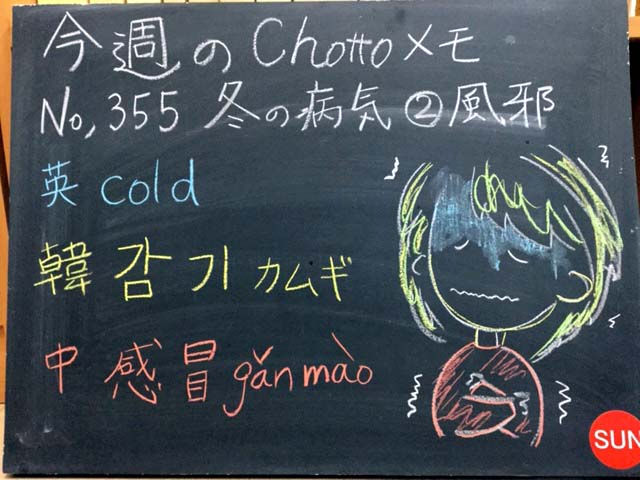 今週のChottoメモ
No,355 冬の病気②風邪
英 cold
韓 감기 カムギ
中 感冒 gǎnmào
SUN